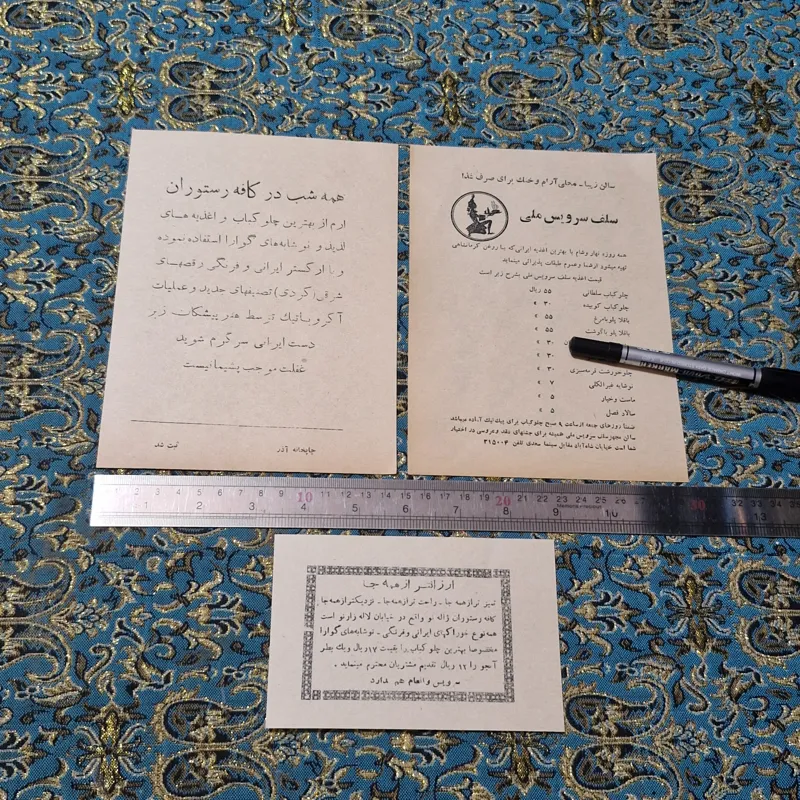 همه شب در کافه رستوران
ارم از بهترین چلوکباب و اغذیه های
لذید و نوشابه‌های گوارا استفاده نموده
و با ارکستر ایرانی و فرنگی رقصهای
شرقی (کردی) تصنیفهای جدید و عملیات
آکروباتیک توسط هنرپیشگان زبر
دست ایرانی سرگرم شوید
غفلت موجب پشیما نیست
چاپخانه آذر
ثبت شد
سالن زیبا - محلی آرام وخنک برای صرف غذا
سلف سرویس ملی
همه روزه نهار وشام با بهترین اغذیه ایرانی که با روغن کرمانشاهی
تهیه میشود ازشما وعموم طبقات پذیرائی مینماید
قیمت اغذیه سلف سرویس ملی بشرح زیر است
چلوکباب سلطانی ۵۵ ریال
چلوکباب کوبیده ۳۰ »
باقلا پلو بامرغ ۵۵ »
باقلا پلو باگوشت ۵۵ »
۳۰ »
۳۰ »
چلوخورشت قرمه‌سبزی ۳۰ »
نوشابه غیرالکلی ۷ »
ماست وخیار ۵ »
سالاد فصل ۵ »
ضمنا روزهای جمعه ازساعت ۹ صبح چلوکباب برای پیک‌نیک آماده میباشد
سالن مجهز سلف سرویس ملی همیشه برای جشنهای عقد وعروسی در اختیار
شما است خیابان شاه‌آباد مقابل سینما سعدی تلفن ۳۱۵۰۰۴
MARKER
1 2 3 4 5 6 7 8 9 10 11 12 13 14 15 16 17 18 19 20 21 22 23 24 25 26 30 32 33 34
1 2 3 4 5 6 7 8 9 10 13
ارزانتر از همه جا
تمیز ترازهمه جا - راحت ترازهمه‌جا - نزدیکترازهمه‌جا
کافه رستوران ژاله نو واقع در خیابان لاله زارنو است
همه نوع خوراکهای ایرانی وفرنگی - نوشابه‌های گوارا
مخصوصا بهترین چلو کباب را بقیمت ۱۷ریال ویک بطر
آبجو را ۱۶ ریال تقدیم مشتریان محترم مینماید .
سرویس وانعام هم ندارد